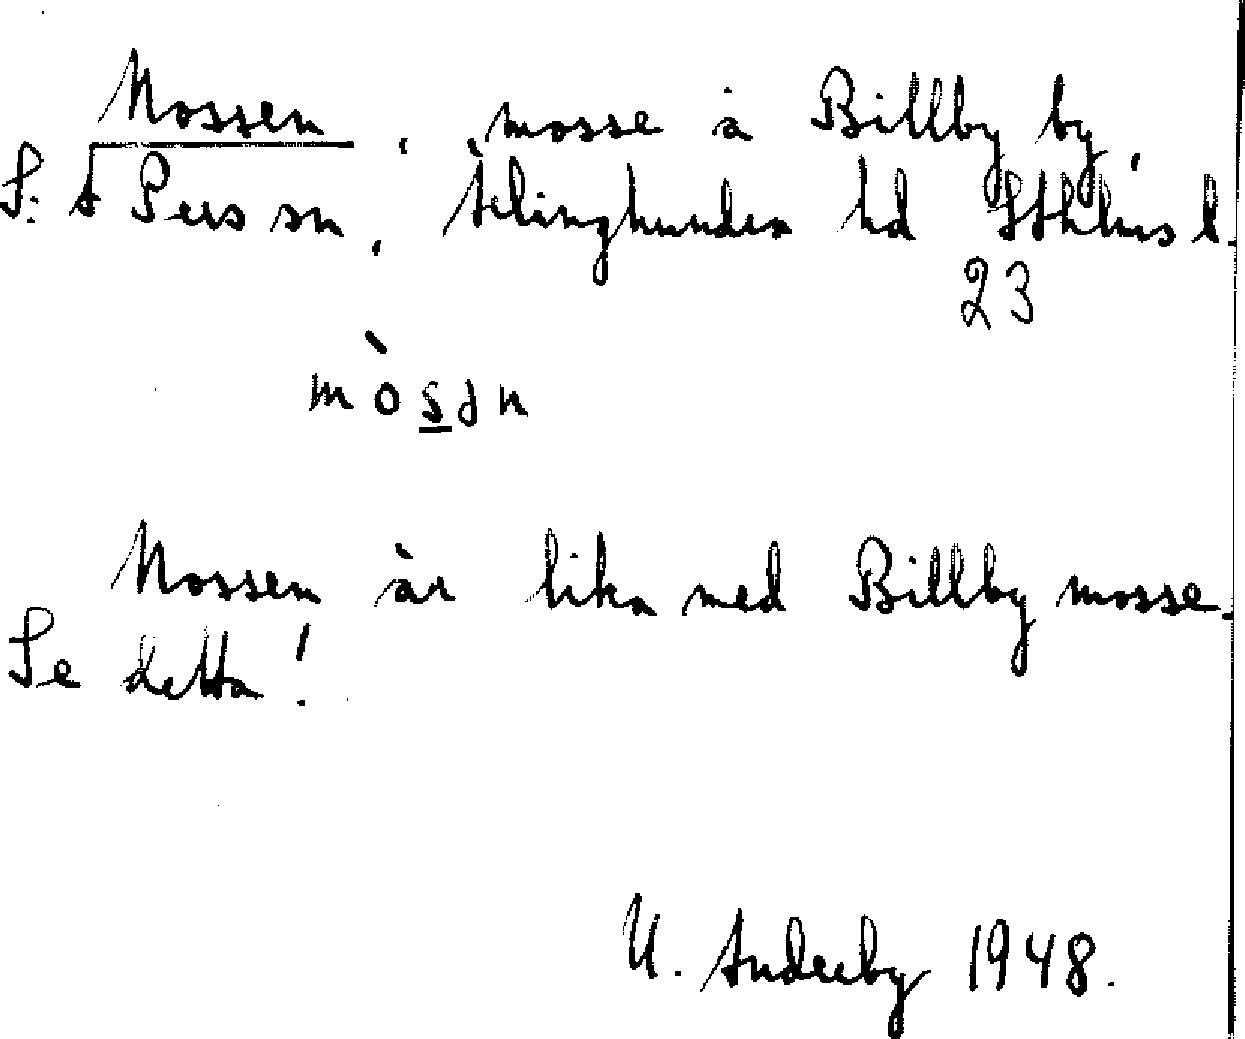 Mossen, mosse å Billby by,
S:t Pers sn, Ärlinghundra hd Sthlms l.
23
mòs̲ən
Mossen är lika med Billby mosse.
Se detta!
U. Anderby 1948.